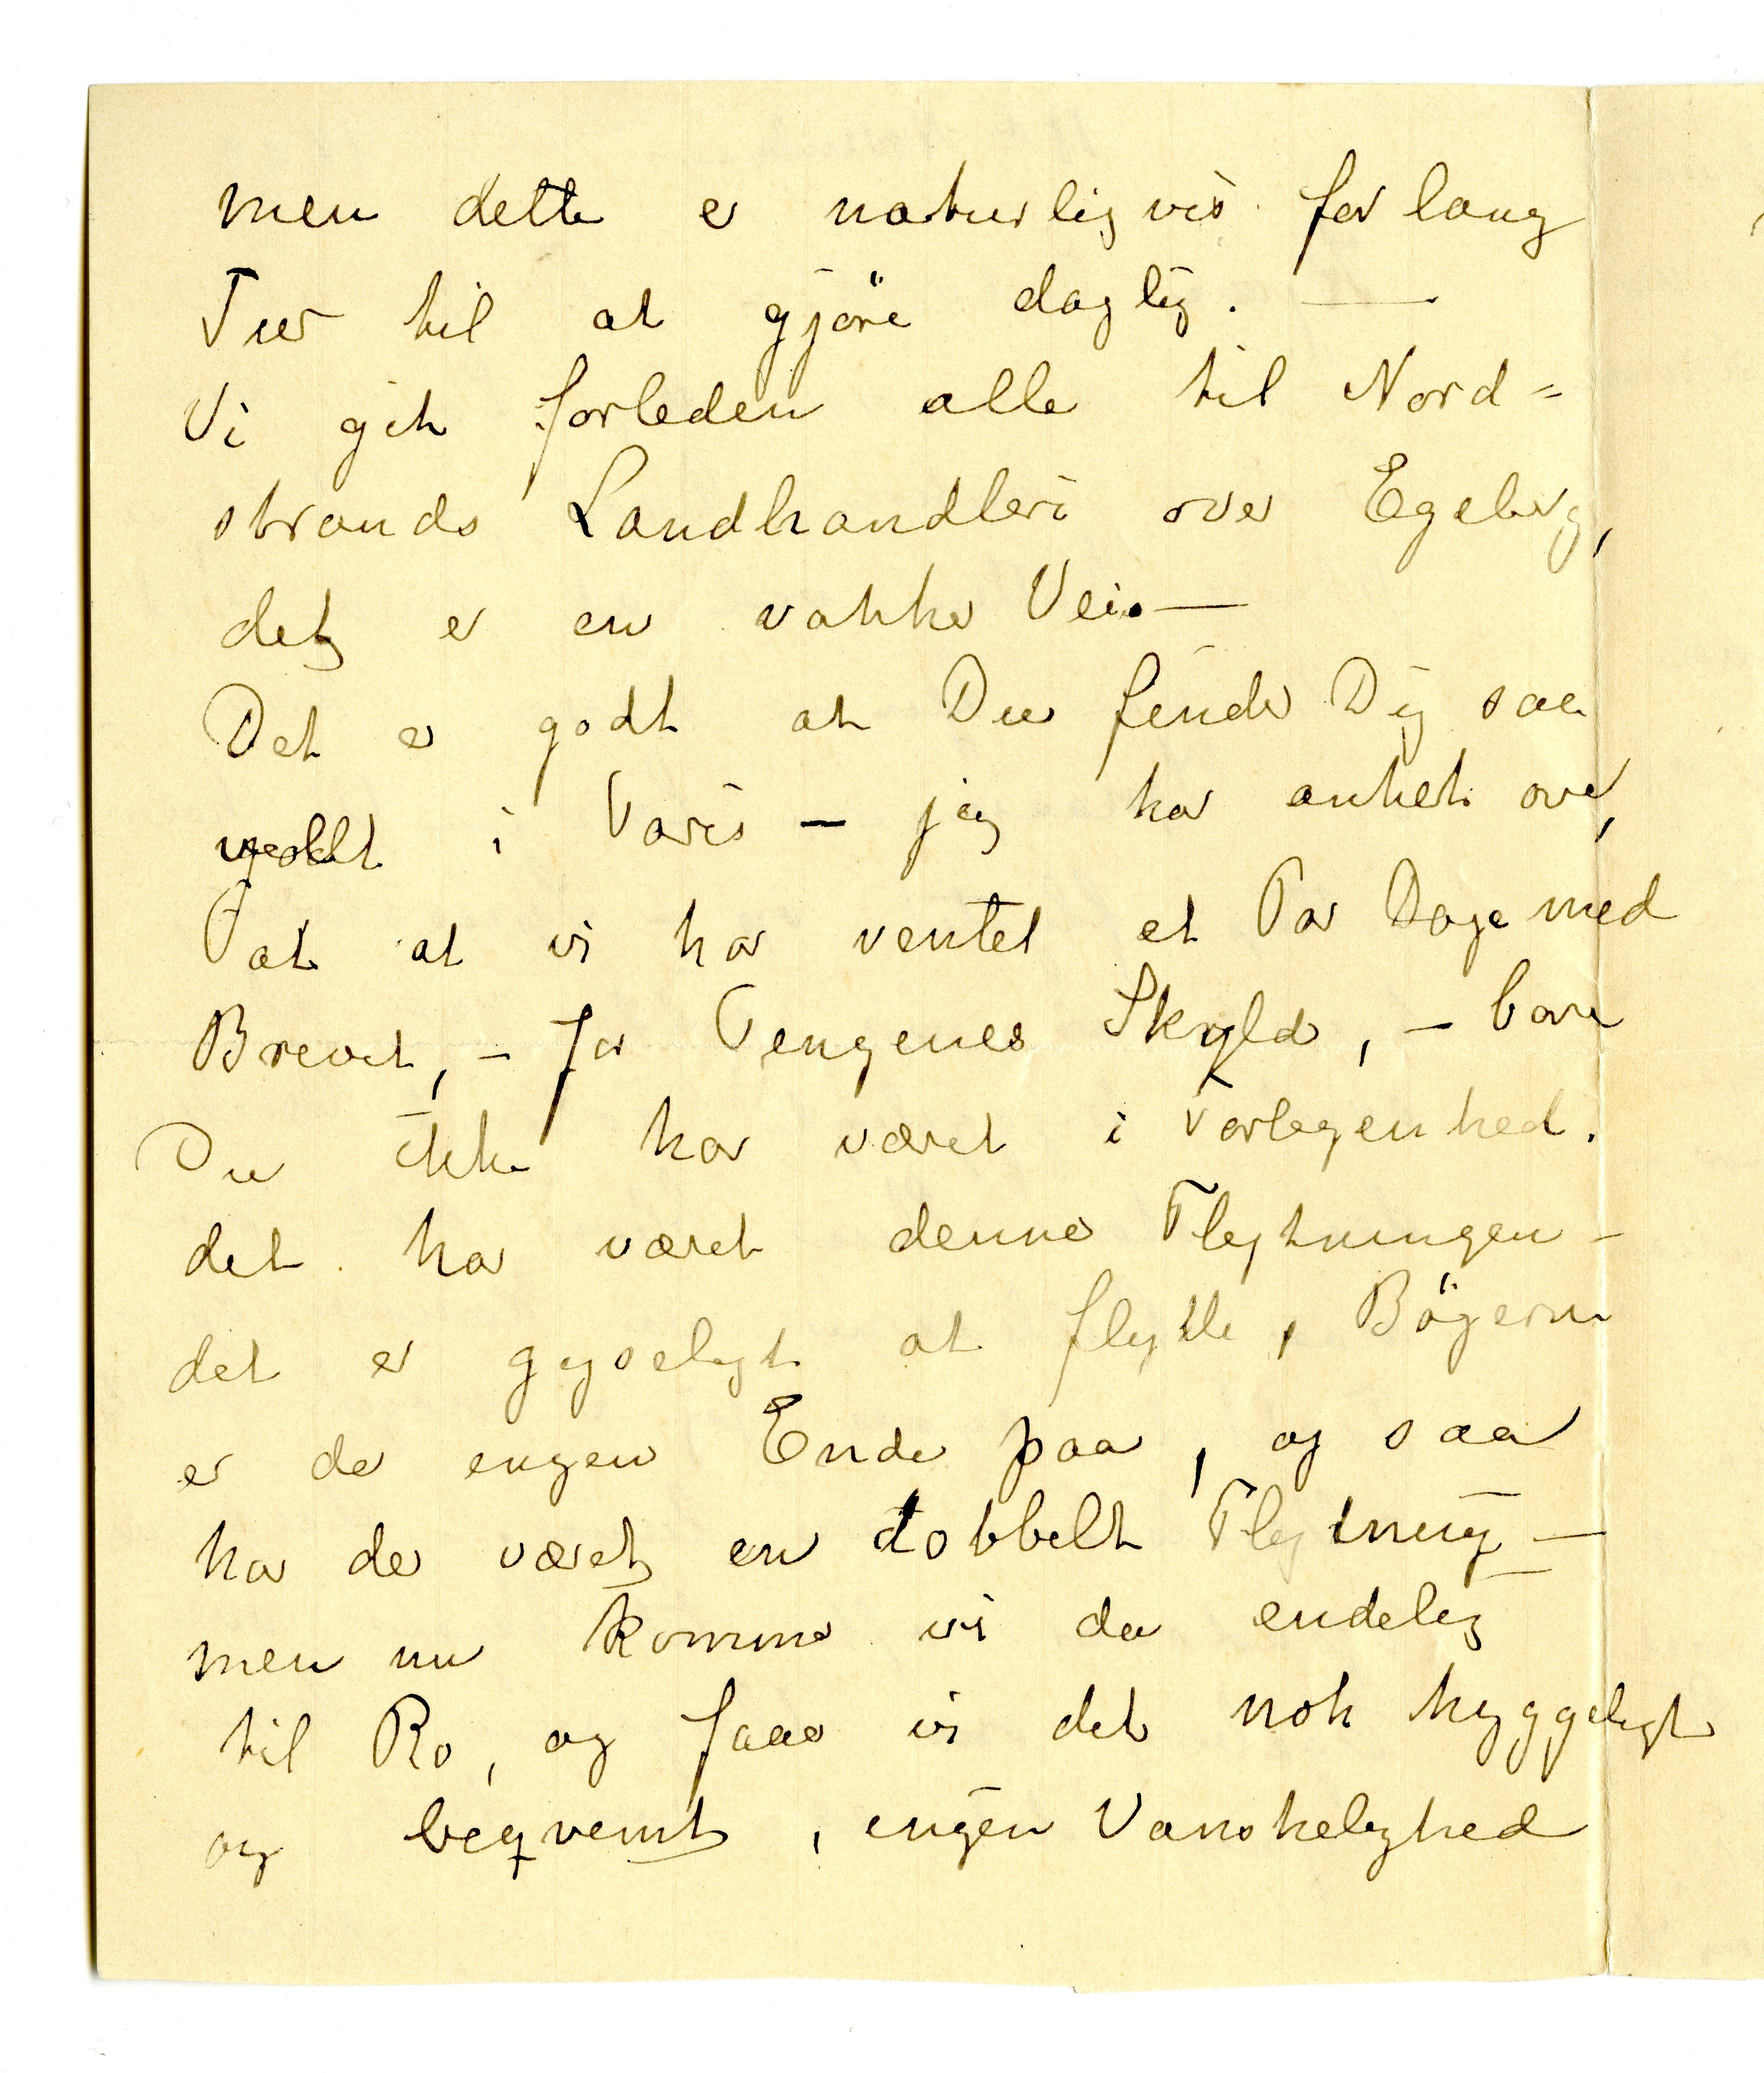 men dette er naturligvis for lang
Tur til at gjöre daglig. —
Vi gik forleden alle til Nord=
strands Landhandleri over Egeberg,
det er en vakker Vei. —
Det er godt at Du finder Dig saa
godt i Paris — jeg har anket over,
at vi har ventet et Par Dage med
Brevet, — for Pengenes Skyld, — bare
Du ikke har været i Forlegenhed.
det har været denne Flytningen —
det er gyseligt at flytte, Bögerne
er der ingen Ende paa, og saa
har der været en dobbelt Flytning —
men nu kommer vi da endelig
til Ro, og faaer vi det nok hyggeligt
og beqvemt, ingen Vanskelighed